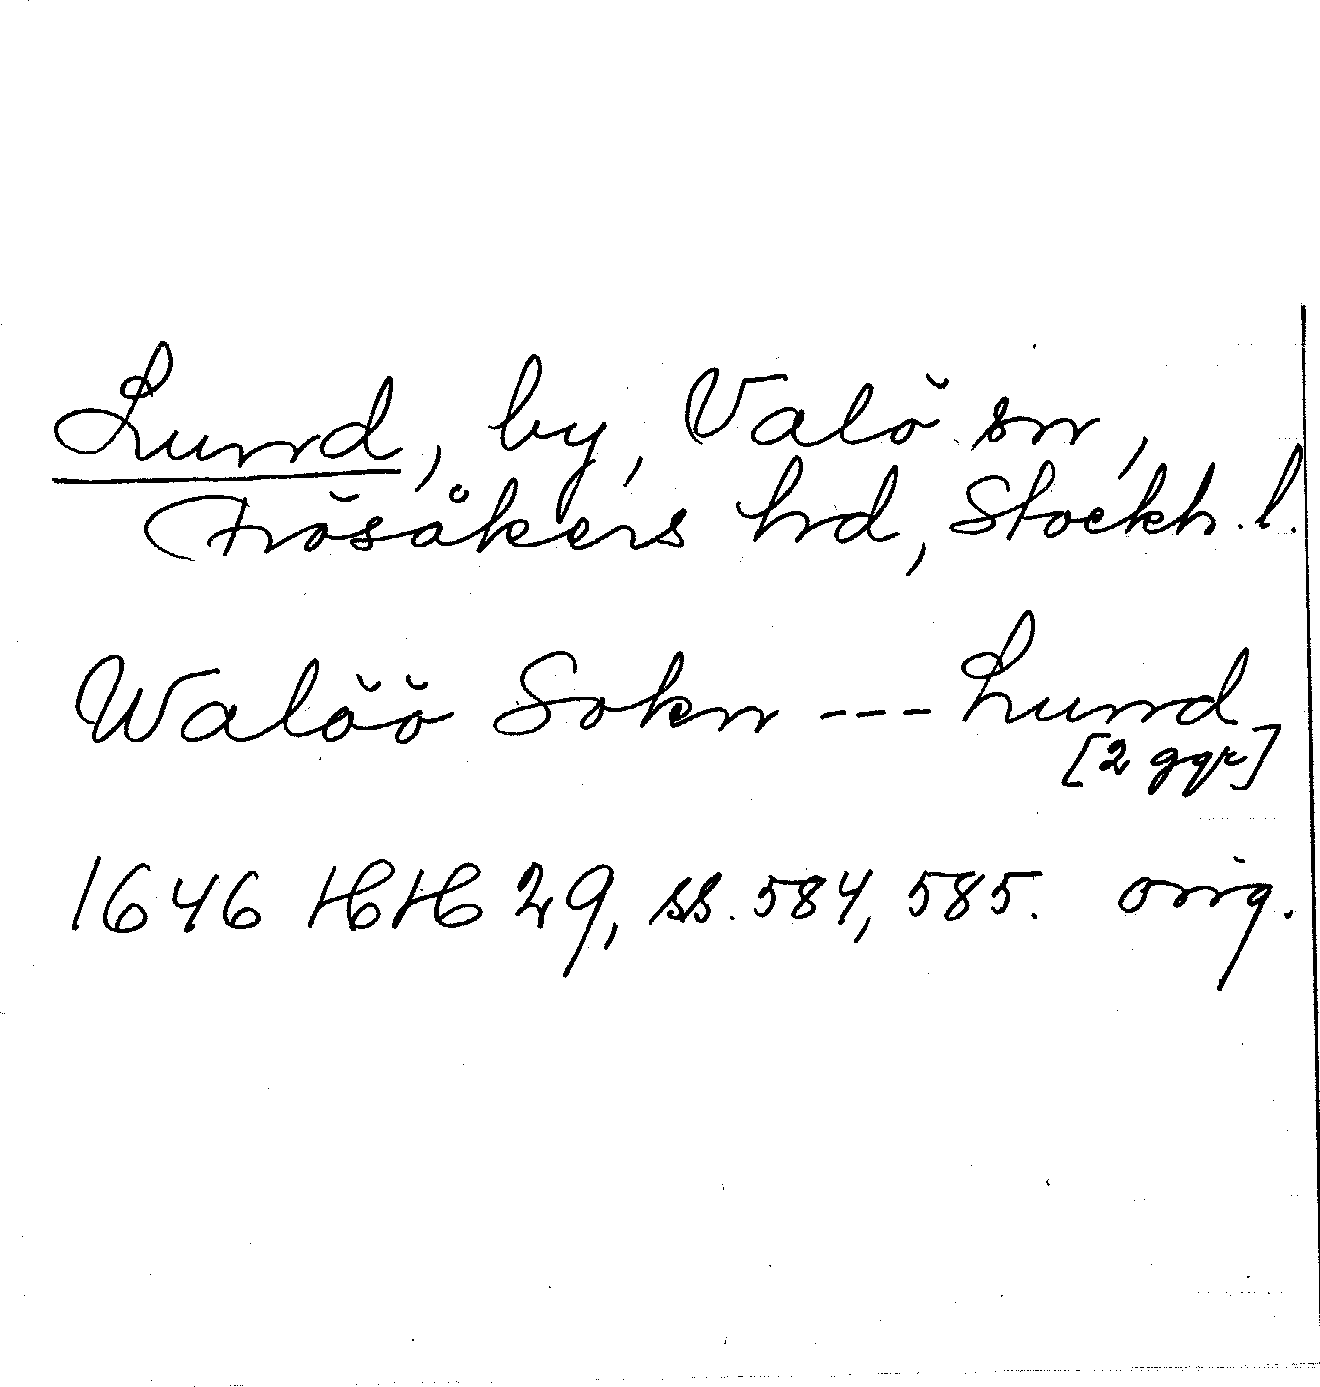 Lund, by, Valö sn,
Frösåkers hd, Stockh. l.
Walöö Sokn --- Lund
[2 ggr]
1646 HH 29, ss. 584, 585. orig.